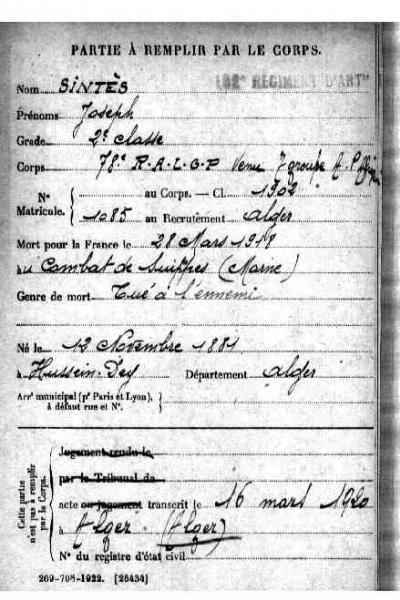 PARTIE À REMPLIR PAR LE CORPS.
Nom SINTÈS RÉGIMENT D'ART
Prénoms Joseph
Grade 2e classe
Corps 78e R.A.L.G.P Venu 7 groupe
N° Matricule. { au Corps. — Cl. 1902
1085 au Recrutement Alger
Mort pour la France le 28 Mars 1918
au Combat de Suippes (Marne)
Genre de mort Tué à l'ennemi
Né le 12 Novembre 1881
à Hussein-Dey Département Alger
Arrt municipal (pr Paris et Lyon),
à défaut rue et N°.
Cette partie n'est pas à remplir par le Corps.
Jugement rendu le
par le Tribunal de
acte ou jugement transcrit le 16 mars 1920
à Alger (Alger)
N° du registre d'état civil
269-708-1922. [26434]